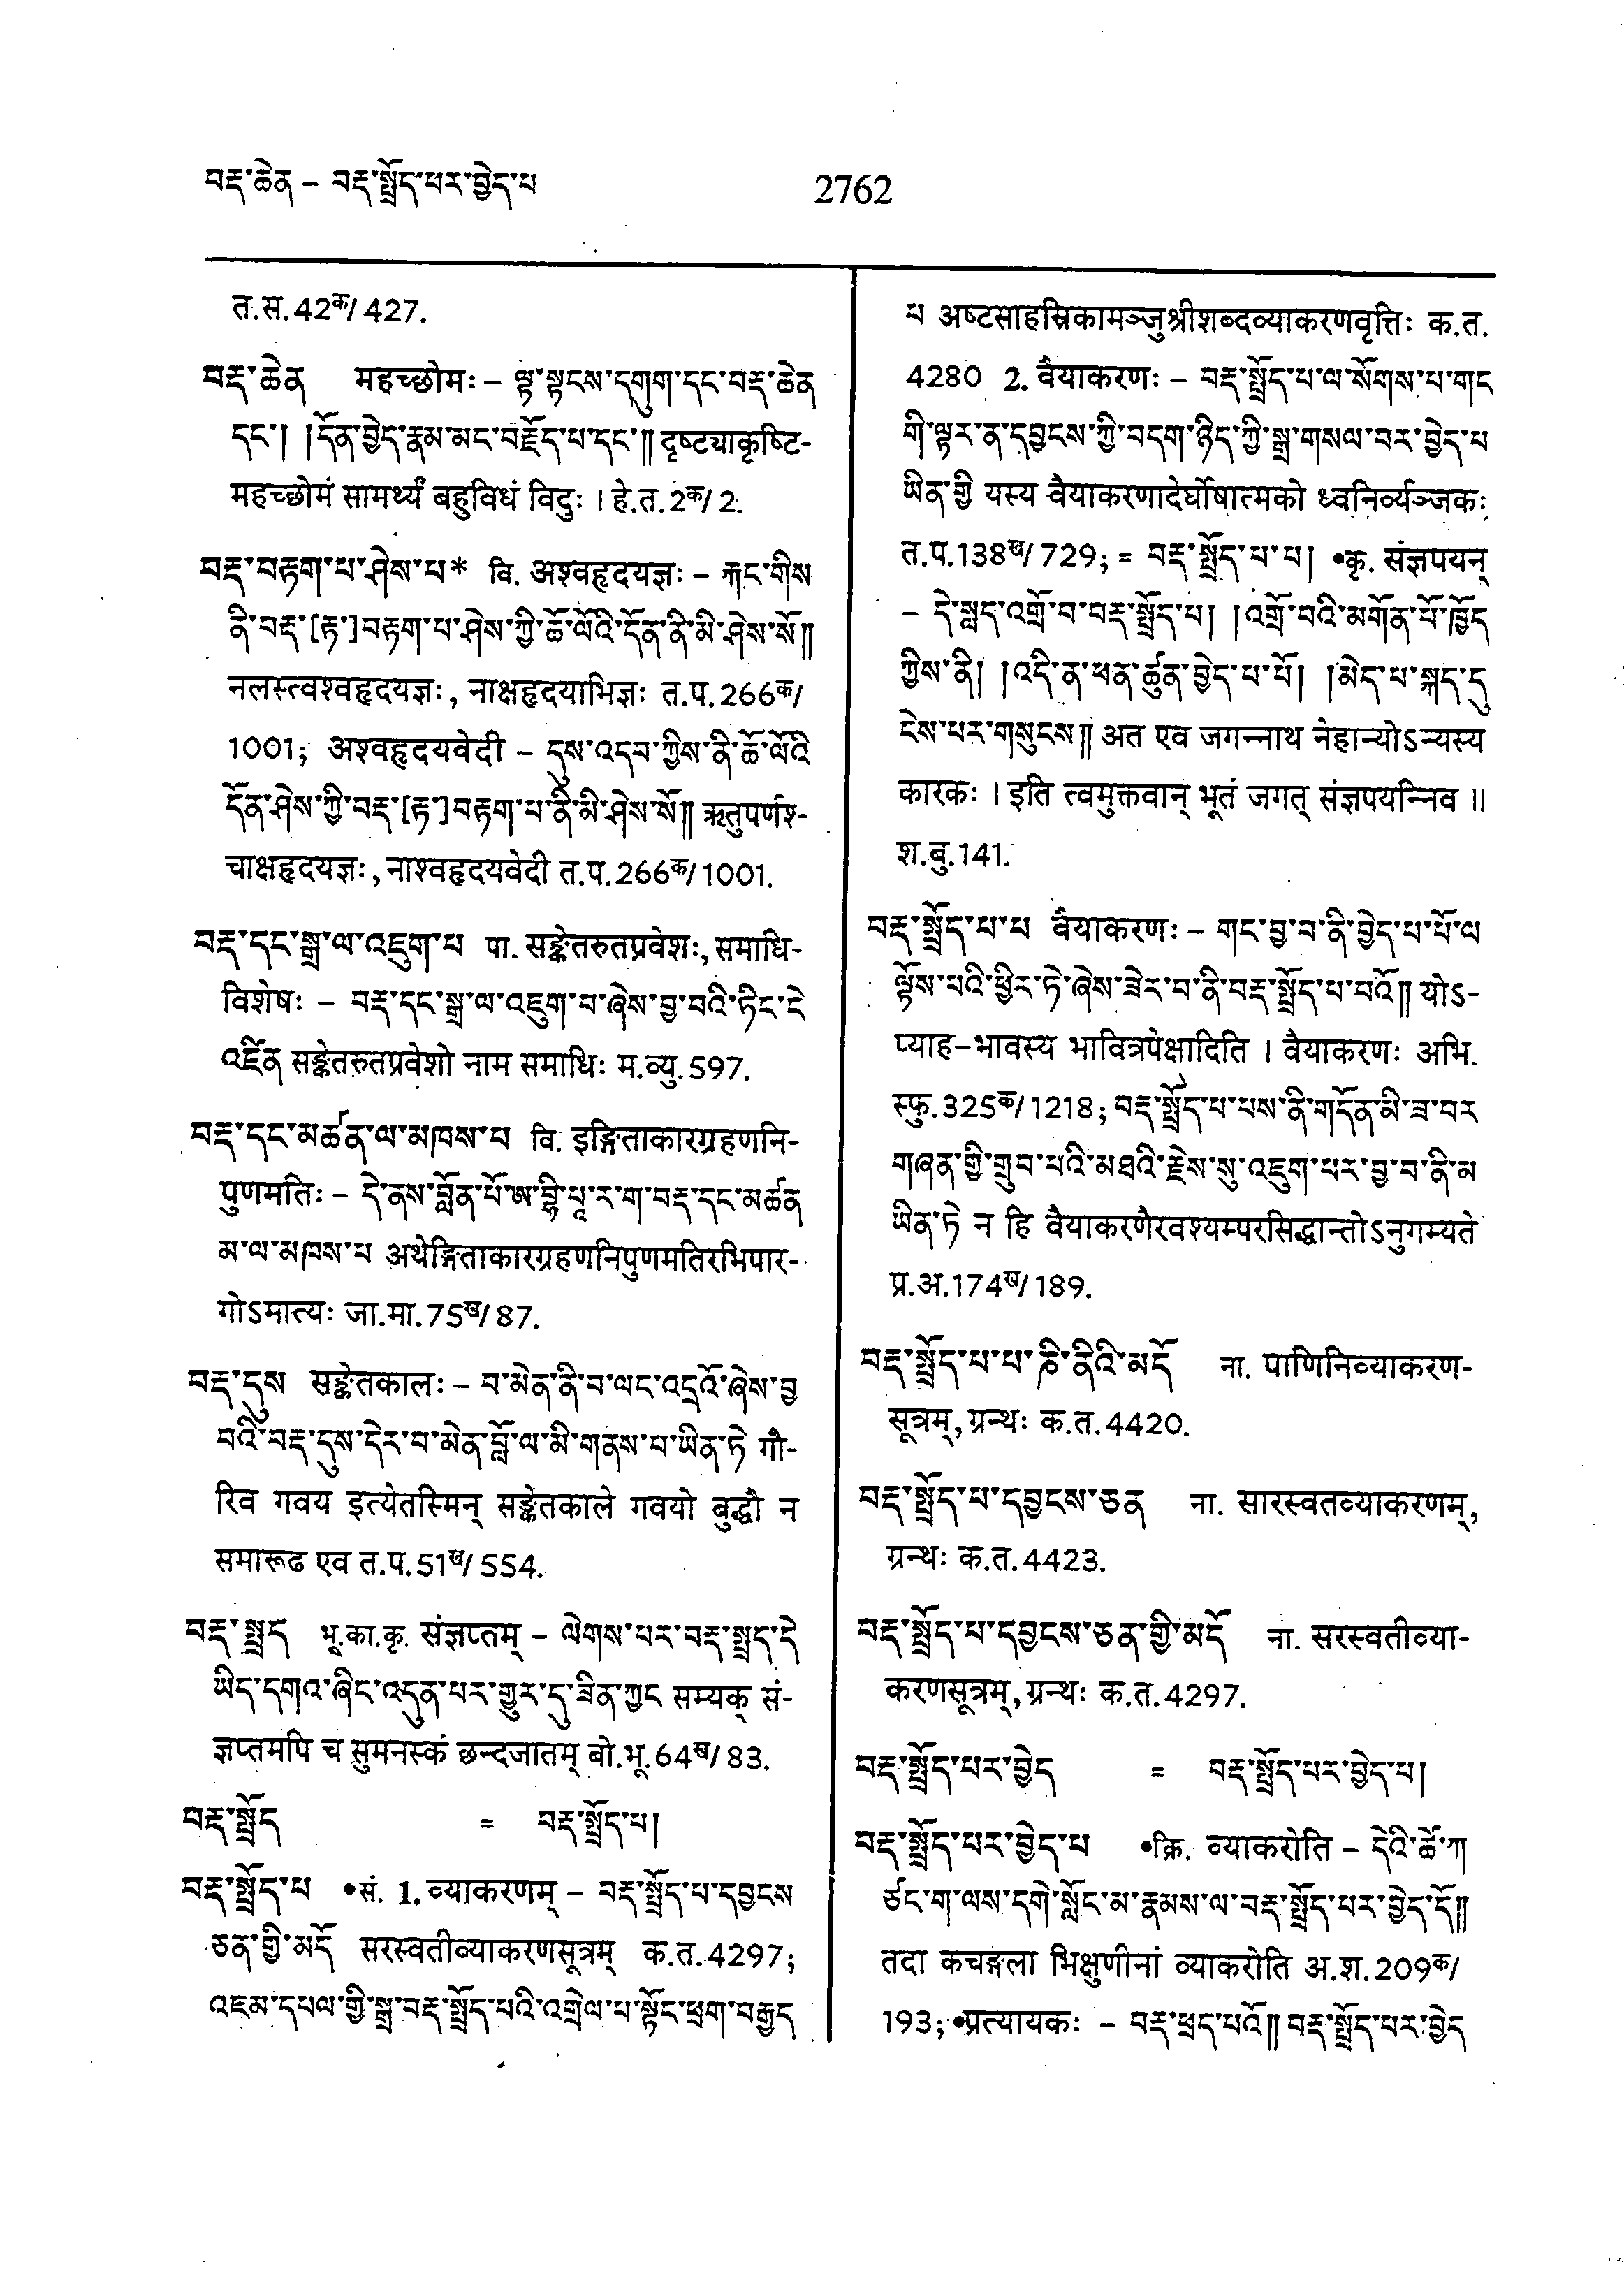 བརྡ་ཆེན – བརྡ་སྤྲོད་པར་བྱེད་པ
2762
त.स.42क/427.
བརྡ་ཆེན महच्छोमः – ལྟ་སྟངས་དགུག་དང་བརྡ་ཆེན
དང་། །དོན་བྱེད་རྣམ་མང་བརྗོད་པ་དང་༎ दृष्ट्याकृष्टि-
महच्छोमं सामर्थ्यं बहुविधं विदुः । हे.त.2क/2.
བརྡ་བརྟག་པ་ཤེས་པ* वि. अश्वहृदयज्ञः – རྐང་གིས
ནི་བརྡ་[རྟ་]བརྟག་པ་ཤེས་ཀྱི་ཆོ་ལོའི་དོན་ནི་མི་ཤེས་སོ༎
नलस्त्वश्वहृदयज्ञः, नाक्षहृदयाभिज्ञः त.प.266क/
1001; अश्वहृदयवेदी – དུས་འདབ་ཀྱིས་ནི་ཆོ་ལོའི
དོན་ཤེས་ཀྱི་བརྡ་[རྟ་]བརྟག་པ་ནི་མི་ཤེས་སོ༎ ऋतुपर्णश-
चाक्षहृदयज्ञः, नाश्वहृदयवेदी त.प.266क/1001.
བརྡ་དང་སྒྲ་ལ་འཇུག་པ पा. सङ्केतरुतप्रवेशः, समाधि-
विशेषः – བརྡ་དང་སྒྲ་ལ་འཇུག་པ་ཞེས་བྱ་བའི་ཏིང་ངེ
འཛིན सङ्केतरुतप्रवेशो नाम समाधिः म.व्यु.597.
བརྡ་དང་མཚན་ལ་མཁས་པ वि. इङ्गिताकारग्रहणनि-
पुणमतिः – དེ་ནས་བློན་པོ་ཨ་བྷི་པཱ་ར་ག་བརྡ་དང་མཚན
མ་ལ་མཁས་པ अथेङ्गिताकारग्रहणनिपुणमतिरभिपार-
गोऽमात्यः जा.मा.75ख/87.
བརྡ་དུས सङ्केतकालः – བ་མེན་ནི་བ་ལང་འདྲའོ་ཞེས་བྱ
བའི་བརྡ་དུས་དེར་བ་མེན་བློ་ལ་མི་གནས་པ་ཡིན་ཏེ गौ-
रिव गवय इत्येतस्मिन् सङ्केतकाले गवयो बुद्धौ न
समारूढ एव त.प.51ख/554.
བརྡ་སྤྲད भू.का.कृ. संज्ञप्तम् – ལེགས་པར་བརྡ་སྤྲད་དེ
ཡིད་དགའ་ཞིང་འདུན་པར་གྱུར་དུ་ཟིན་ཀྱང सम्यक् सं-
ज्ञप्तमपि च सुमनस्कं छन्दजातम् बो.भू.64ख/83.
བརྡ་སྤྲོད = བརྡ་སྤྲོད་པ།
བརྡ་སྤྲོད་པ •सं. 1. व्याकरणम् – བརྡ་སྤྲོད་པ་དབྱངས
ཅན་གྱི་མདོ सरस्वतीव्याकरणसूत्रम् क.त.4297;
འཇམ་དཔལ་གྱི་སྒྲ་བརྡ་སྤྲོད་པའི་འགྲེལ་པ་སྟོང་ཕྲག་བརྒྱད
པ अष्टसाहस्रिकामञ्जुश्रीशब्दव्याकरणवृत्तिः क.त.
4280 2. वैयाकरणः – བརྡ་སྤྲོད་པ་ལ་སོགས་པ་གང
གི་ལྟར་ན་དབྱངས་ཀྱི་བདག་ཉིད་ཀྱི་སྒྲ་གསལ་བར་བྱེད་པ
ཡིན་གྱི यस्य वैयाकरणादेर्घोषात्मको ध्वनिर्व्यञ्जकः
त.प.138ख/729; = བརྡ་སྤྲོད་པ་པ། •कृ. संज्ञपयन्
– དེ་སླད་འགྲོ་བ་བརྡ་སྤྲོད་པ། །འགྲོ་བའི་མགོན་པོ་ཁྱོད
ཀྱིས་ནི། །འདི་ན་ཕན་ཚུན་བྱེད་པ་པོ། །མེད་པ་སྐད་དུ
ངེས་པར་གསུངས༎ अत एव जगन्नाथ नेहान्योऽन्यस्य
कारकः । इति त्वमुक्तवान् भूतं जगत् संज्ञपयन्निव ॥
श.बु.141.
བརྡ་སྤྲོད་པ་པ वैयाकरणः – གང་བྱ་བ་ནི་བྱེད་པ་པོ་ལ
ལྟོས་པའི་ཕྱིར་ཏེ་ཞེས་ཟེར་བ་ནི་བརྡ་སྤྲོད་པ་པའོ༎ योऽ-
प्याह–भावस्य भावित्रपेक्षादिति । वैयाकरणः अभि.
स्फु.325क/1218; བརྡ་སྤྲོད་པ་པས་ནི་གདོན་མི་ཟ་བར
གཞན་གྱི་གྲུབ་པའི་མཐའི་རྗེས་སུ་འཇུག་པར་བྱ་བ་ནི་མ
ཡིན་ཏེ न हि वैयाकरणैरवश्यम्परसिद्धान्तोऽनुगम्यते
प्र.अ.174ख/189.
བརྡ་སྤྲོད་པ་པ་ཎི་ནིའི་མདོ ना. पाणिनिव्याकरण-
सूत्रम्, ग्रन्थः क.त.4420.
བརྡ་སྤྲོད་པ་དབྱངས་ཅན ना. सारस्वतव्याकरणम्,
ग्रन्थः क.त.4423.
བརྡ་སྤྲོད་པ་དབྱངས་ཅན་གྱི་མདོ ना. सरस्वतीव्या-
करणसूत्रम्, ग्रन्थः क.त.4297.
བརྡ་སྤྲོད་པར་བྱེད = བརྡ་སྤྲོད་པར་བྱེད་པ།
བརྡ་སྤྲོད་པར་བྱེད་པ •क्रि. व्याकरोति – དེའི་ཚེ་ཀ
ཙང་ག་ལས་དགེ་སློང་མ་རྣམས་ལ་བརྡ་སྤྲོད་པར་བྱེད་དོ༎
तदा कचङ्गला भिक्षुणीनां व्याकरोति अ.श.209क/
193; •प्रत्यायकः – བརྡ་ཕྲད་པའོ༎ བརྡ་སྤྲོད་པར་བྱེད